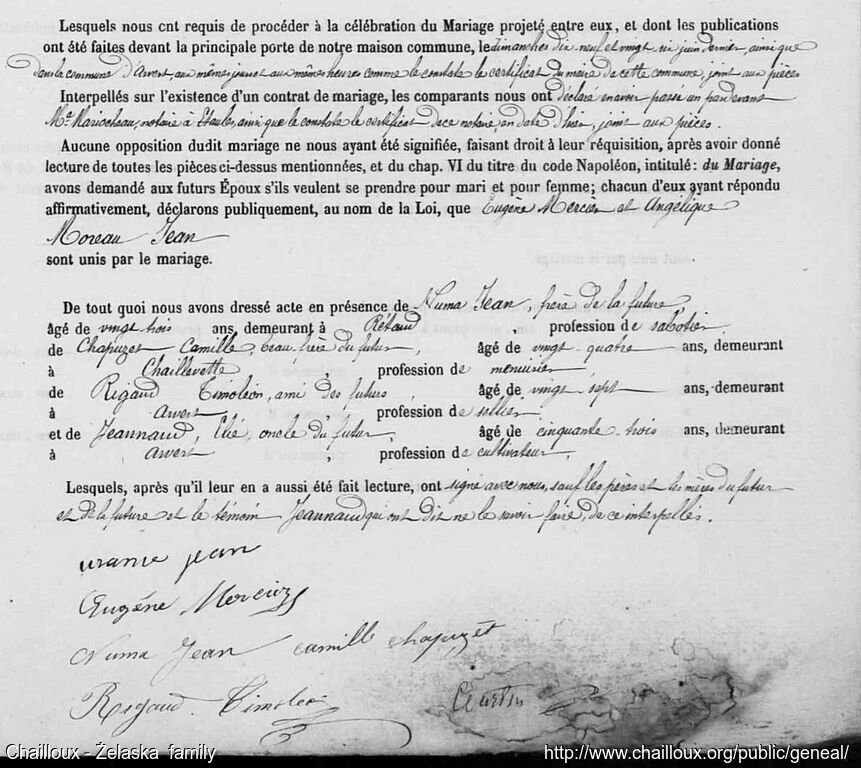 Lesquels nous ont requis de procéder à la célébration du Mariage projeté entre eux, et dont les publications
ont été faites devant la principale porte de notre maison commune, les dimanches dix neuf et vingt six juin dernier, ainsi que
dans la commune d'Arvert, aux mêmes jours et aux mêmes heures comme le constate le certificat du maire de cette commune, joint aux pièces
Interpellés sur l'existence d'un contrat de mariage, les comparants nous ont déclaré en avoir passé un par devant
Me Mariocheau, notaire à Etaules, ainsi que le constate le certificat de ce notaire, en date d'hier, joint aux pièces.
Aucune opposition dudit mariage ne nous ayant été signifiée, faisant droit à leur réquisition, après avoir donné
lecture de toutes les pièces ci-dessus mentionnées, et du chap. VI du titre du code Napoléon, intitulé: du Mariage,
avons demandé aux futurs Époux s'ils veulent se prendre pour mari et pour femme; chacun d'eux ayant répondu
affirmativement, déclarons publiquement, au nom de la Loi, que Eugène Mercier et Angélique
Moreau Jean
sont unis par le mariage.
De tout quoi nous avons dressé acte en présence de Numa Jean, frère de la future,
âgé de vingt trois ans, demeurant à Rétaud, profession de sabotier,
de Chapuzet Camille, beau frère du futur, âgé de vingt-quatre ans, demeurant
à Chaillevette, profession de menuisier,
de Rigaud Timoléon, ami des futurs, âgé de vingt-sept ans, demeurant
à Arvert, profession de sellier,
et de Jeannaud, Elié, oncle du futur, âgé de cinquante-trois ans, demeurant
à Arvert, profession de cultivateur,
Lesquels, après qu'il leur en a aussi été fait lecture, ont signé avec nous, sauf les pères et les mères du futur
et de la future et le témoin Jeannaud qui ont dit ne le savoir faire, de ce interpellés.
urame jean
Eugéne Mercier
Numa Jean camille chapuzet
Rigaud Timoleon
Chailloux - Želaska family http://www.chailloux.org/public/geneal/